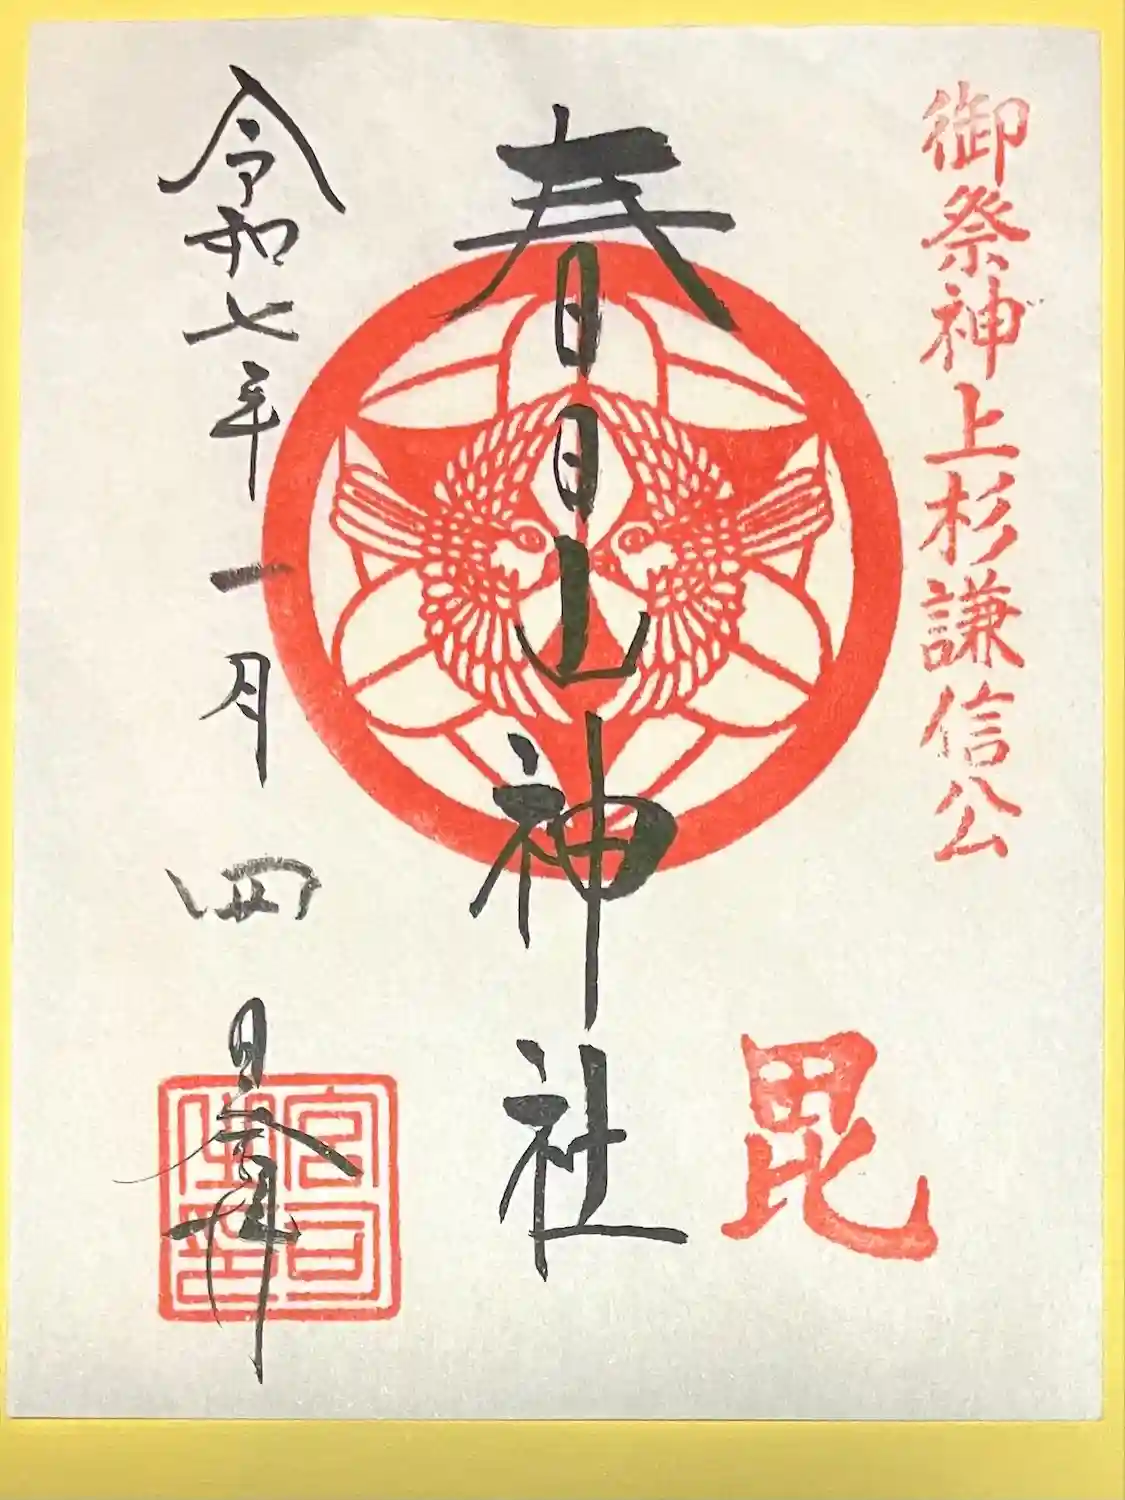 御祭神上杉謙信公
毘
春日山神社
令和七年一月四日奉拝